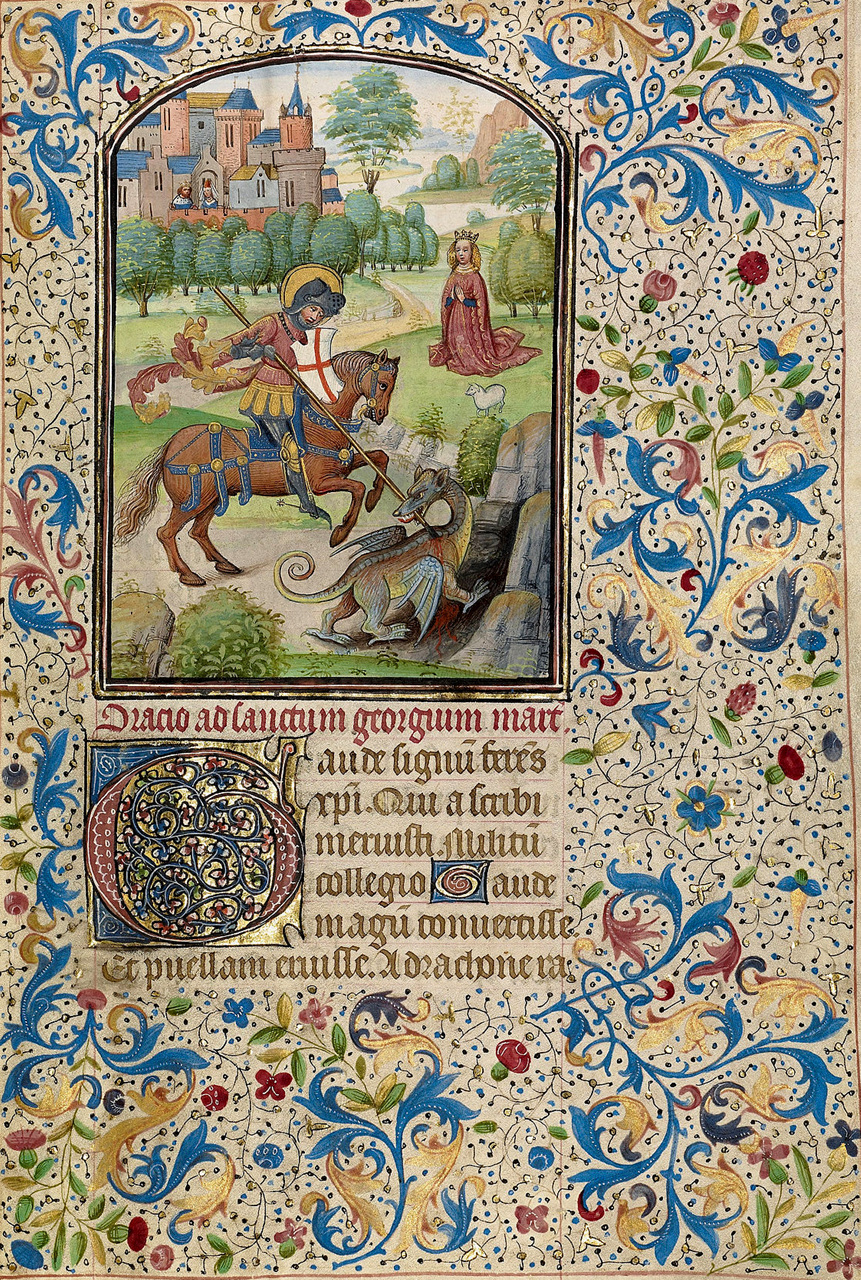 Oracio ad sanctum georgium mart.
Gaude signū ferēs
xpi. Qui a scribi
meruisti Militū
collegio Gaude
magū convertisse
Et puellam eruisse. A drachone ra